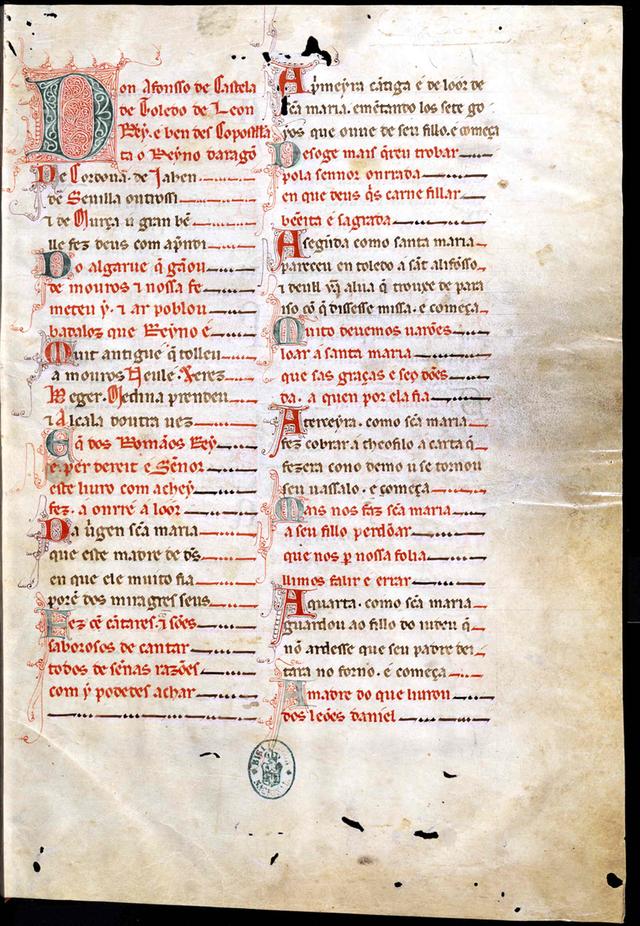 Don Afonsso de Castela
de Toledo de Leon
Rey. e ben des Coposteła
ta o Reyno daragõ
De Cordoua. de Jahen
de Seuilla outrossi
⁊ de Murça u gran bẽ
lle fez deus com ap̃ndi
Do algarue q̃ gãou
de mouros ⁊ nossa fe
meteu y. ⁊ ar poblou
badalloz que Reyno é
Muit antigue q̃ tolleu
a mouros Neule. Xerez
Beger. Medina prendeu
⁊ Alcala doutra uez
E q̃ dos Romãos Rey
é. per dereit e Sẽnor
este liuro com achey
fez. a onrr̃ e a loor
Da uirgen sc̃a maria
que este madre de d̃s
en que ele muito fia
porẽ dos miragres seus
Fez cẽ cãtares. ⁊ sões
saborosos de cantar
todos de sẽnas razões
com y podedes achar
A p̃meyra cãtiga é de loor de
sc̃a maria. emẽtando los sete go
yos que ouue de seu fillo. e começa
Desoge mais q̃reu trobar
pola sennor onrrada
en que deus q̃s carne fillar
bẽeita e sagrada
A segũda como santa maria
pareceu en toledo a sãt alifõsso
⁊ deull ũa alua q̃ trouxe de para
iso cõ q̃ dissesse missa. e começa
Muito deuemos uarões
loar a santa maria
que sas graças e seus dões
da. a quen por ela fia
A terceyra. como sc̃a maria
fez cobrar a theofilo a carta q̃
fezera cono demo u se tornou
seu uassalo. e começa
Mais nos faz sc̃a maria
a seu fillo perdõar
que nos p̱ nossa folia
llimos falir e errar
A quarta. como sc̃a maria
guardou ao fillo do iudeu q̃
nõ ardesse que seu padre dei
tara no forno. e começa
A madre do que liurou
dos leões daniel